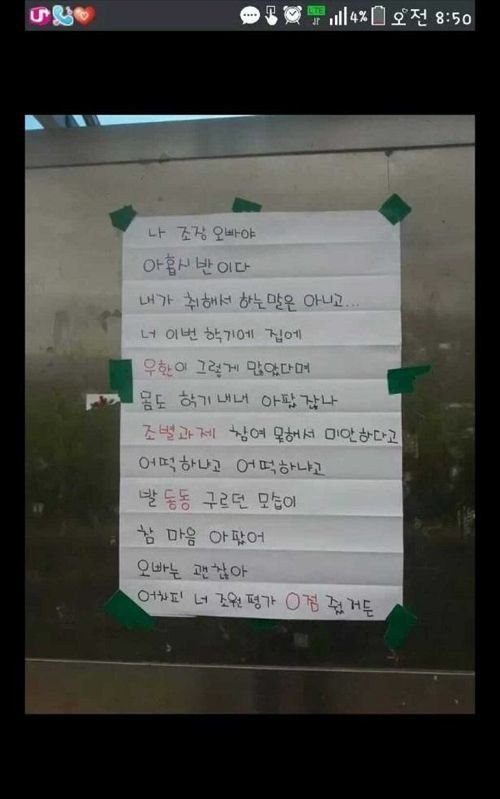 LTE
4% 오전 8:50
나 조장오빠야
아홉시반이다
내가 취해서 하는말은 아니고...
너 이번 학기에 집에
우환이 그렇게 많았다며
몸도 학기내내 아팠잖나
조별과제 참여 못해서 미안하다고
어떡하냐고 어떡하냐고
발 동동 구르던 모습이
참 마음 아팠어
오빠는 괜찮아
어차피 너 조원평가 0점 줬거든